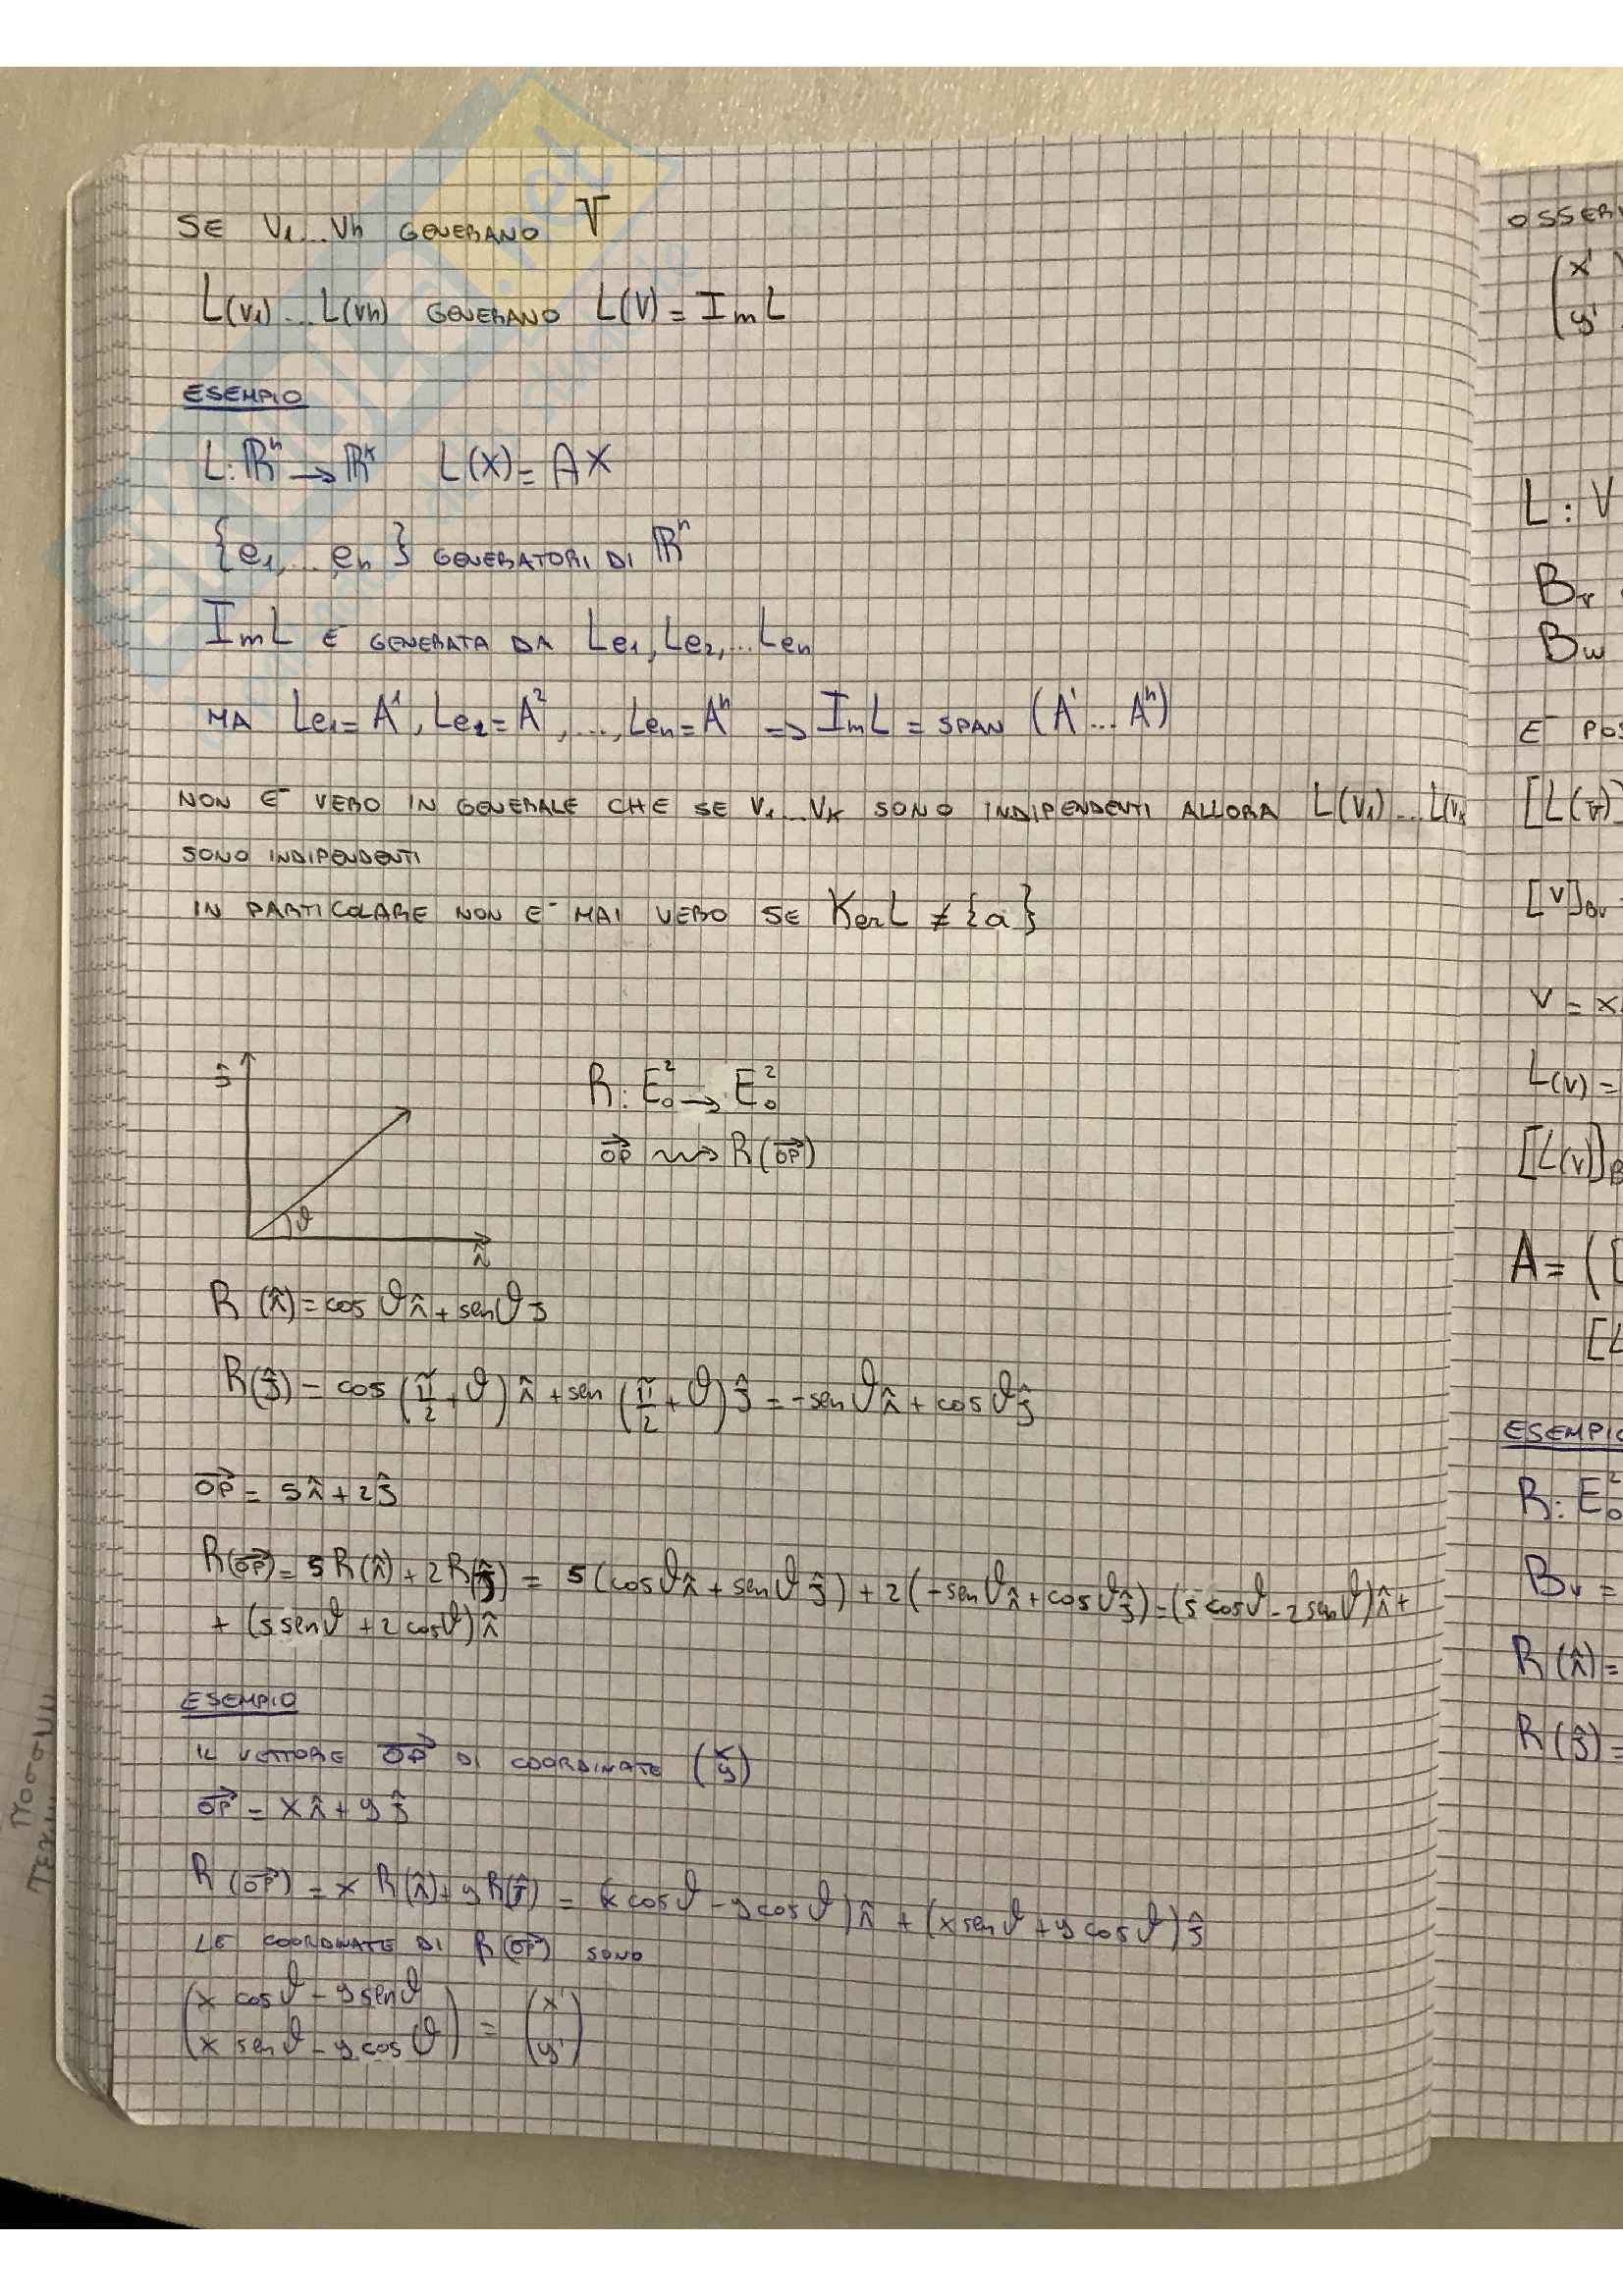 SE V₁...Vh GENERANO V
L(v₁)...L(vh) GENERANO L(V) = Im L
ESEMPIO
L: ℝⁿ → ℝᵏ L(x) = AX
{e₁,... en} GENERATORI DI ℝⁿ
Im L E' GENERATA DA Le₁, Le₂,... Len
MA Le₁ = A¹, Le₂ = A², ..., Len = Aⁿ => Im L = SPAN (A¹...Aⁿ)
NON E' VERO IN GENERALE CHE SE V₁...Vk SONO INDIPENDENTI ALLORA L(V₁)...L(Vk
SONO INDIPENDENTI
IN PARTICOLARE NON E' MAI VERO SE Ker L ≠ {a}
ĵ
R: E²₀ → E²₀
OP⃗ ⇝ R(OP⃗)
ϑ
î
R(î) = cos ϑ î + sen ϑ j
R(ĵ) = cos (π/2 + ϑ) î + sen (π/2 + ϑ) ĵ = -sen ϑ î + cos ϑ ĵ
OP⃗ = 5î + 2ĵ
R(OP⃗) = 5 R(î) + 2 R(ĵ) = 5 (cos ϑ î + sen ϑ ĵ) + 2 (-sen ϑ î + cos ϑ ĵ) = (5 cos ϑ - 2 sen ϑ) î +
+ (5 sen ϑ + 2 cos ϑ) î
ESEMPIO
IL VETTORE OP⃗ DI COORDINATE (x y)
OP⃗ = x î + y ĵ
R(OP⃗) = x R(î) + y R(ĵ) = (x cos ϑ - y cos ϑ) î + (x sen ϑ + y cos ϑ) ĵ
LE COORDINATE DI R(OP⃗) SONO
(x cos ϑ - y sen ϑ
x sen ϑ - y cos ϑ) = (x' y')
OSSER
(x'
y'
L: V
Bv
Bw
E' POS
[L(v)
[V]Bv
V = x
L(v) =
[L(v)]B
A = (
[L
ESEMPIO
R: E²₀
Bv =
R(î) =
R(ĵ) =